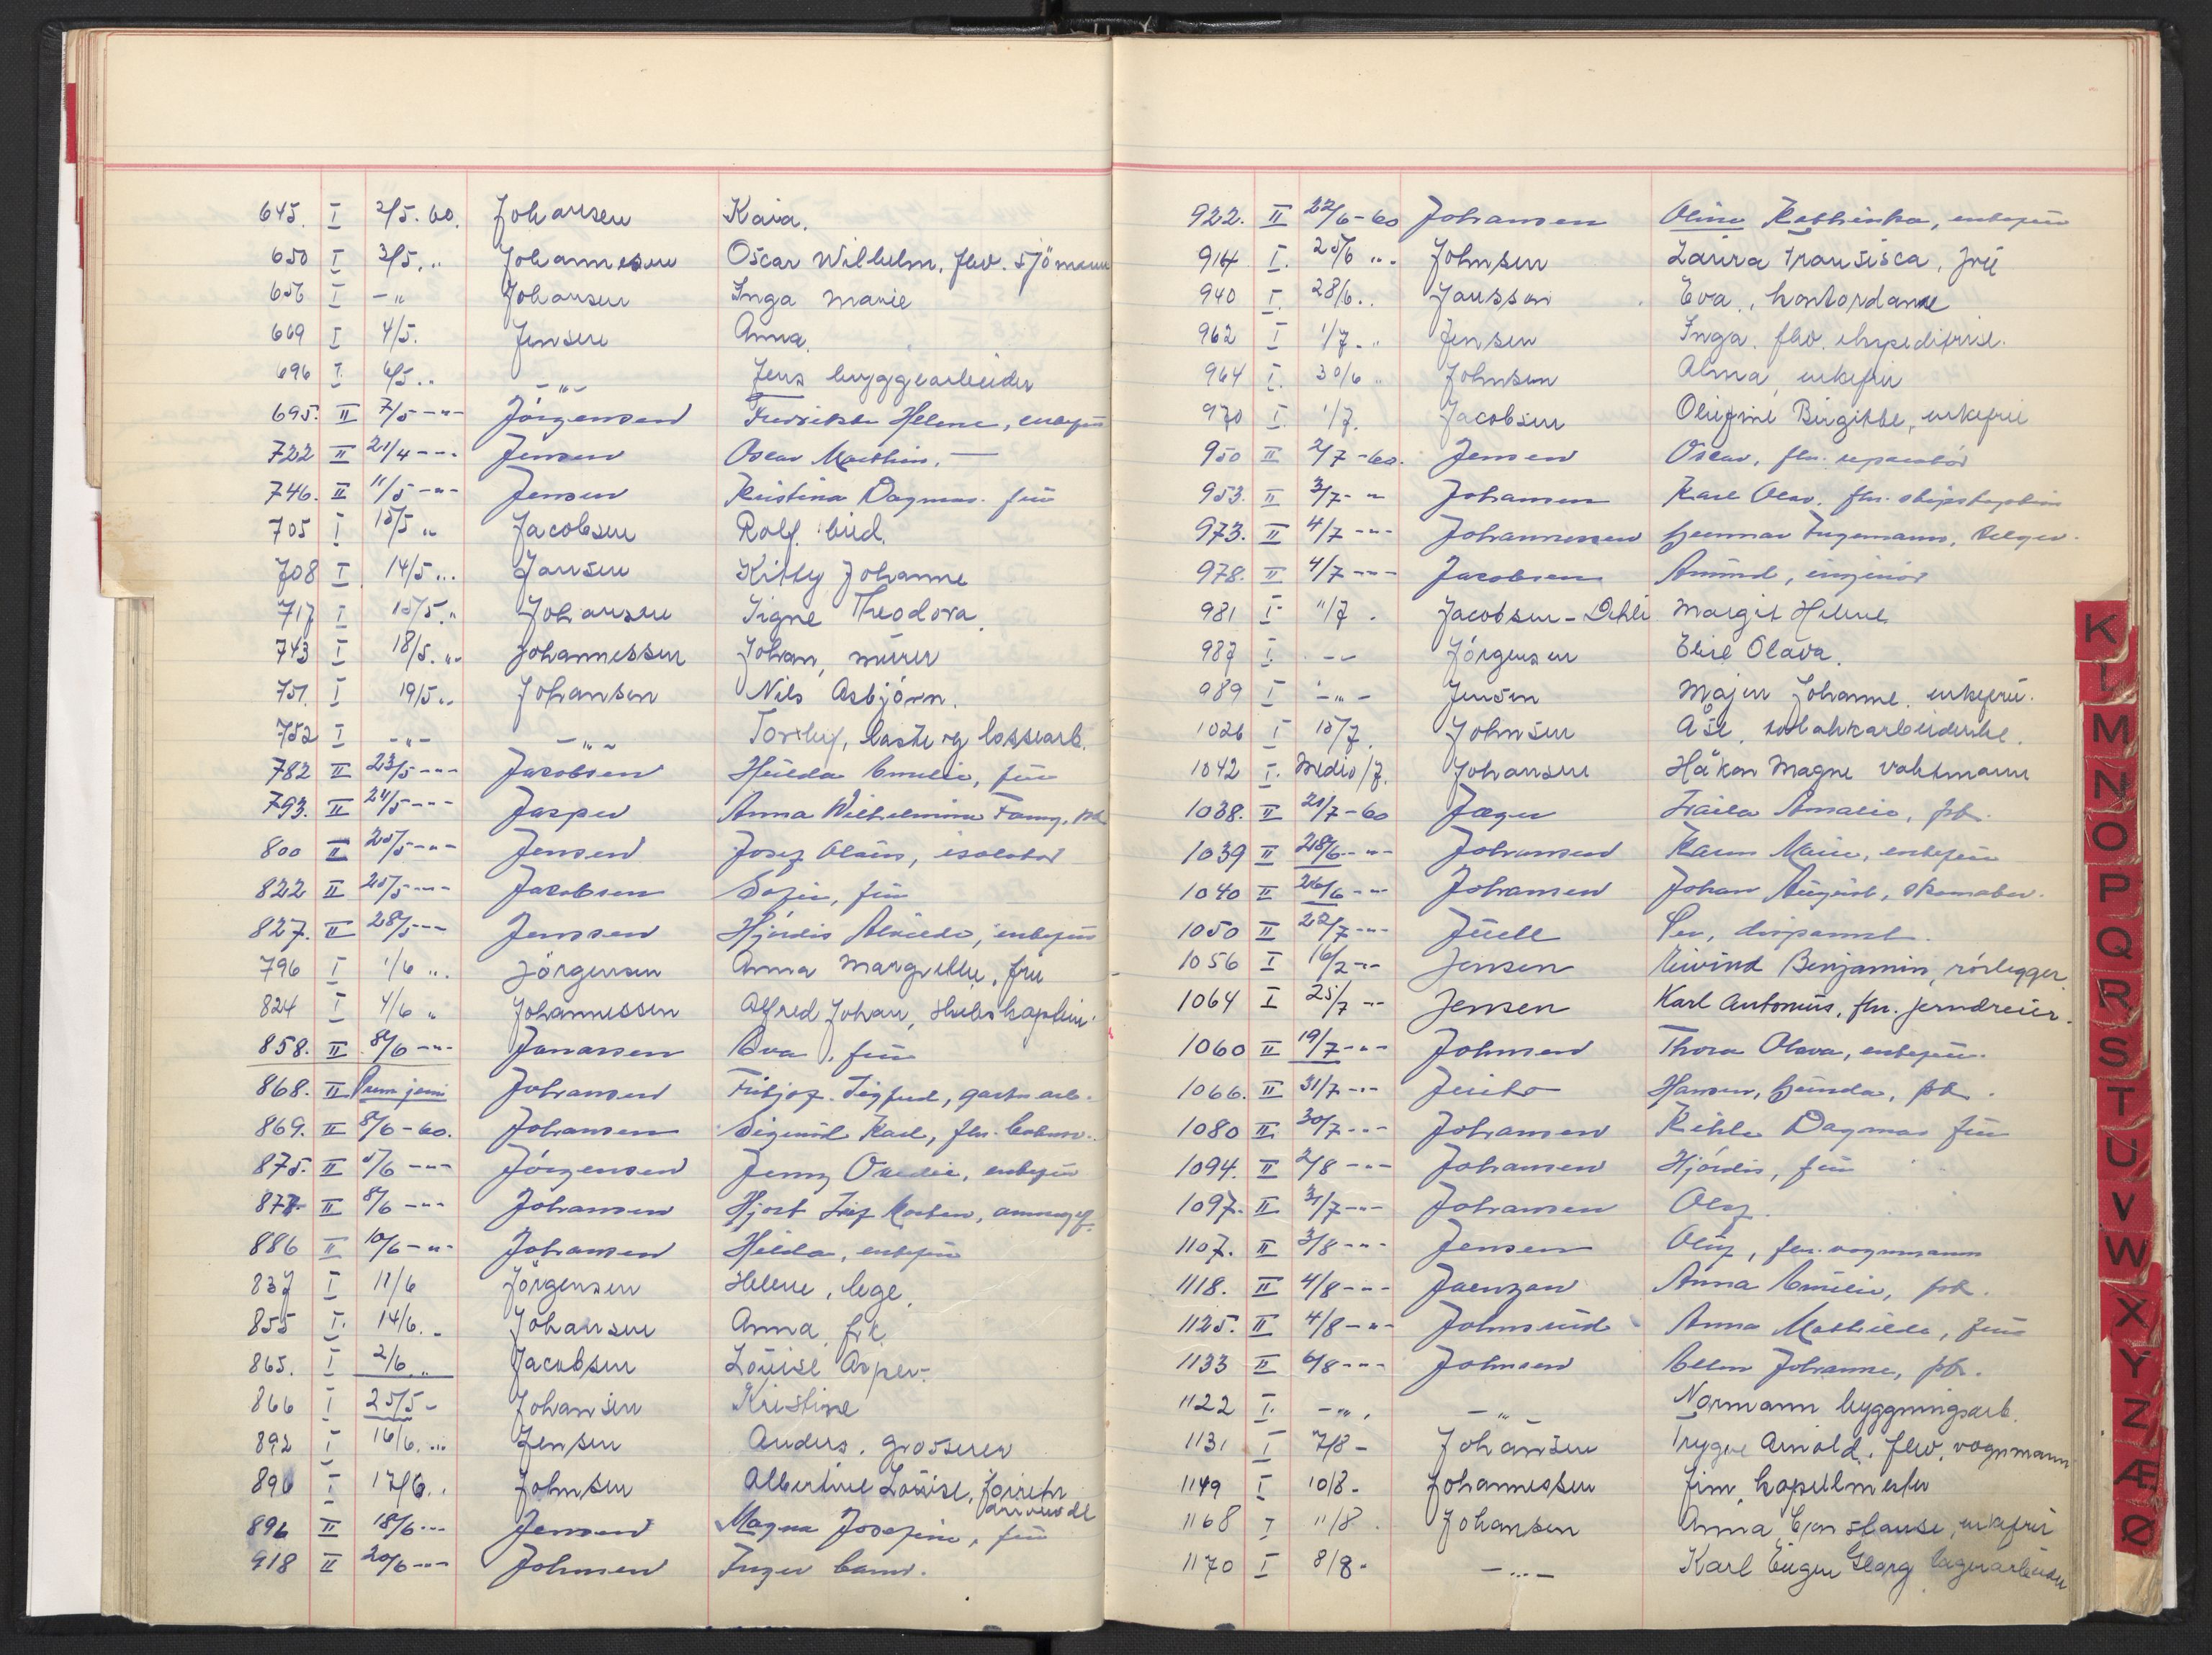 645. I 2/5. 60. Johansen Kaia.
650 I 3/5. " Johannesen Oscar Wilhelm. flw. sjömann
656 I - " Johansen Inga Marie
669 I 4/5. Jensen Anna.
696 I 6/5. " - " - Jens bryggearbeider
695. II 7/5 - " - Jörgensen Fredrikke Helene, enkefru
722 II 21/4 - - - Jensen Oscar Marthin. —
746. II 11/5 - " - Jensen Kristina Dagmar. fru
705 I 13/5 " Jacobsen Rolf. bud.
708 I 14/5 ... Jansen Kitty Johanne
717 I 15/5. " Johansen Signe Theodora.
743 I 18/5. " Johannessen Johan, murer
751. I 19/5 .. Johansen Nils Asbjörn.
752 I - " - - " - Torleif, laste og lossearb.
782 II 23/5 - " - Jacobsen Hilda Emilie, fru
793. II 24/5 - - - Jasper Anna Wilhelmine Fanny.
800 II 25/5 - " - Jensen Josef Olaus, isolatör
822 II 25/5 - " - Jacobsen Sofie, fru
827. II 28/5 - - - Jenssen Hjördis Alvilde, enkefru
796 I 1/6 .. Jörgensen Anna Margrethe, fru
824 I 4/6 " Johannessen Alfred Johan,
858. II 8/6 - " - Janansen Eva, fru
868. II Prim juni Johansen Fritjof. Sigfred, gartn arb.
869. II 8/6 - 60. Johansen Sigurd Karl, flw.
875. II 5/6 - " - Jörgensen Jenny Oredie, enkefru
877. II 8/6 - " - Johansen Hjort Leif Morten,
886 II 10/6 - " - Johansen Hilda, enkefru
837 I 11/6 Jörgensen Helene, lege.
855 I. 14/6. - Johansen Anna frk.
865. I 2/6 " Jacobsen Louise Asper.
866 I 25/5 - Johansen Kristine
892 I 16/6. ... Jensen Anders, grosserer
896 I 17/6. . Johnsen Albertine Louise, forretn
drivende
896 II 18/6 - - - Jensen Magna Josefine, fru
918 II 20/6 - - - Johnsen Inger Cam.
922. II 22/6 - 60 Johansen Olina Kathinka, enkefru
914 I. 25/6 " . Johnsen Laura Fransisca, fru
940 I. 28/6. . Jansson Eva, kontordame
962 I 1/7 - " Jensen Inga. flw. ekspeditrise.
964 I. 30/6 " Johnsen Alma, enkefru
970 I. 1/7. Jacobsen Olufine Birgitte, enkefru
950 II 2/7 - 60. Jensen Oscar, flw. reparatör
953. II 3/7 - " Johansen Karl Olav. flw. skipskaptein
973. II 4/7 - " - Johannessen Gunnar Ingemann, selger.
978. II 4/7 - - - Jacobsen Amund, ingeniör
981 I. 11/7 . Jacobsen - Dehli Margit Helene
987 I. - - Jörgensen Elise Olava.
989 I - " - Jensen Majen Johanne. enkefru.
1026 I 15/7 Johnsen Åse. tobakkarbeiderske.
1042 I. Medio/7. Johansen Håkon Magne vaktmann
1038. II 21/7 - 60 Jæger Laila Amalie, frk.
1039 II 28/6 - " - Johansen Karen Marie, enkefru
1040 II 26/6 - " - Johansen Johan August, skomaker.
1050 II 22/7 - " - Juell Per, disponent.
1056 I 16/2 - " Jensen Eivind Benjamin, rörlegger
1064 I 25/7 - " Jensen Karl Antonius, flw. jerndreier.
1060 II 19/7 - " - Johnsen Thora Olava, enkefru.
1066. II 31/7 - " - Hansen, Gunda, frk.
1080 II 30/7 - " - Johansen Dagmar fru
1094. II 2/8 - " - Johansen Hjördis, fru
1097. II 31/7 - " - Johansen Olaf.
1107. II 3/8 - " - Jensen Oluf, flw. vognmann
1118. II 4/8 - - - Jaenzon Anna Emilie, frk.
1125. II 4/8 - " - Johnsrud Anna Mathilde, fru
1133 II 6/8 - " - Johnsen Ellen Johanne, frk.
1122 I. - " . - " - Normann bygningsarb.
1131 I 7/8 - Johansen Trygve Arnold. flw. vognmann
1149 I 10/8 - Johannessen Jim, kapellmester
1168 I 11/8 . Johansen Anna Constanse, enkefru
1170 I 8/8 - - " - Karl Eugen Georg lagerarbeider
K
L
M
N
O
P
Q
R
S
T
U
V
W
X
Y
Z
Æ
Ø